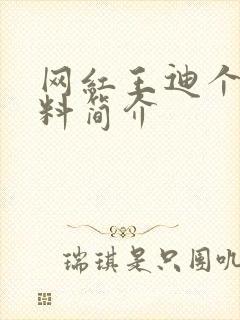 网红王迪个
料简介
瑞琪是只图叽